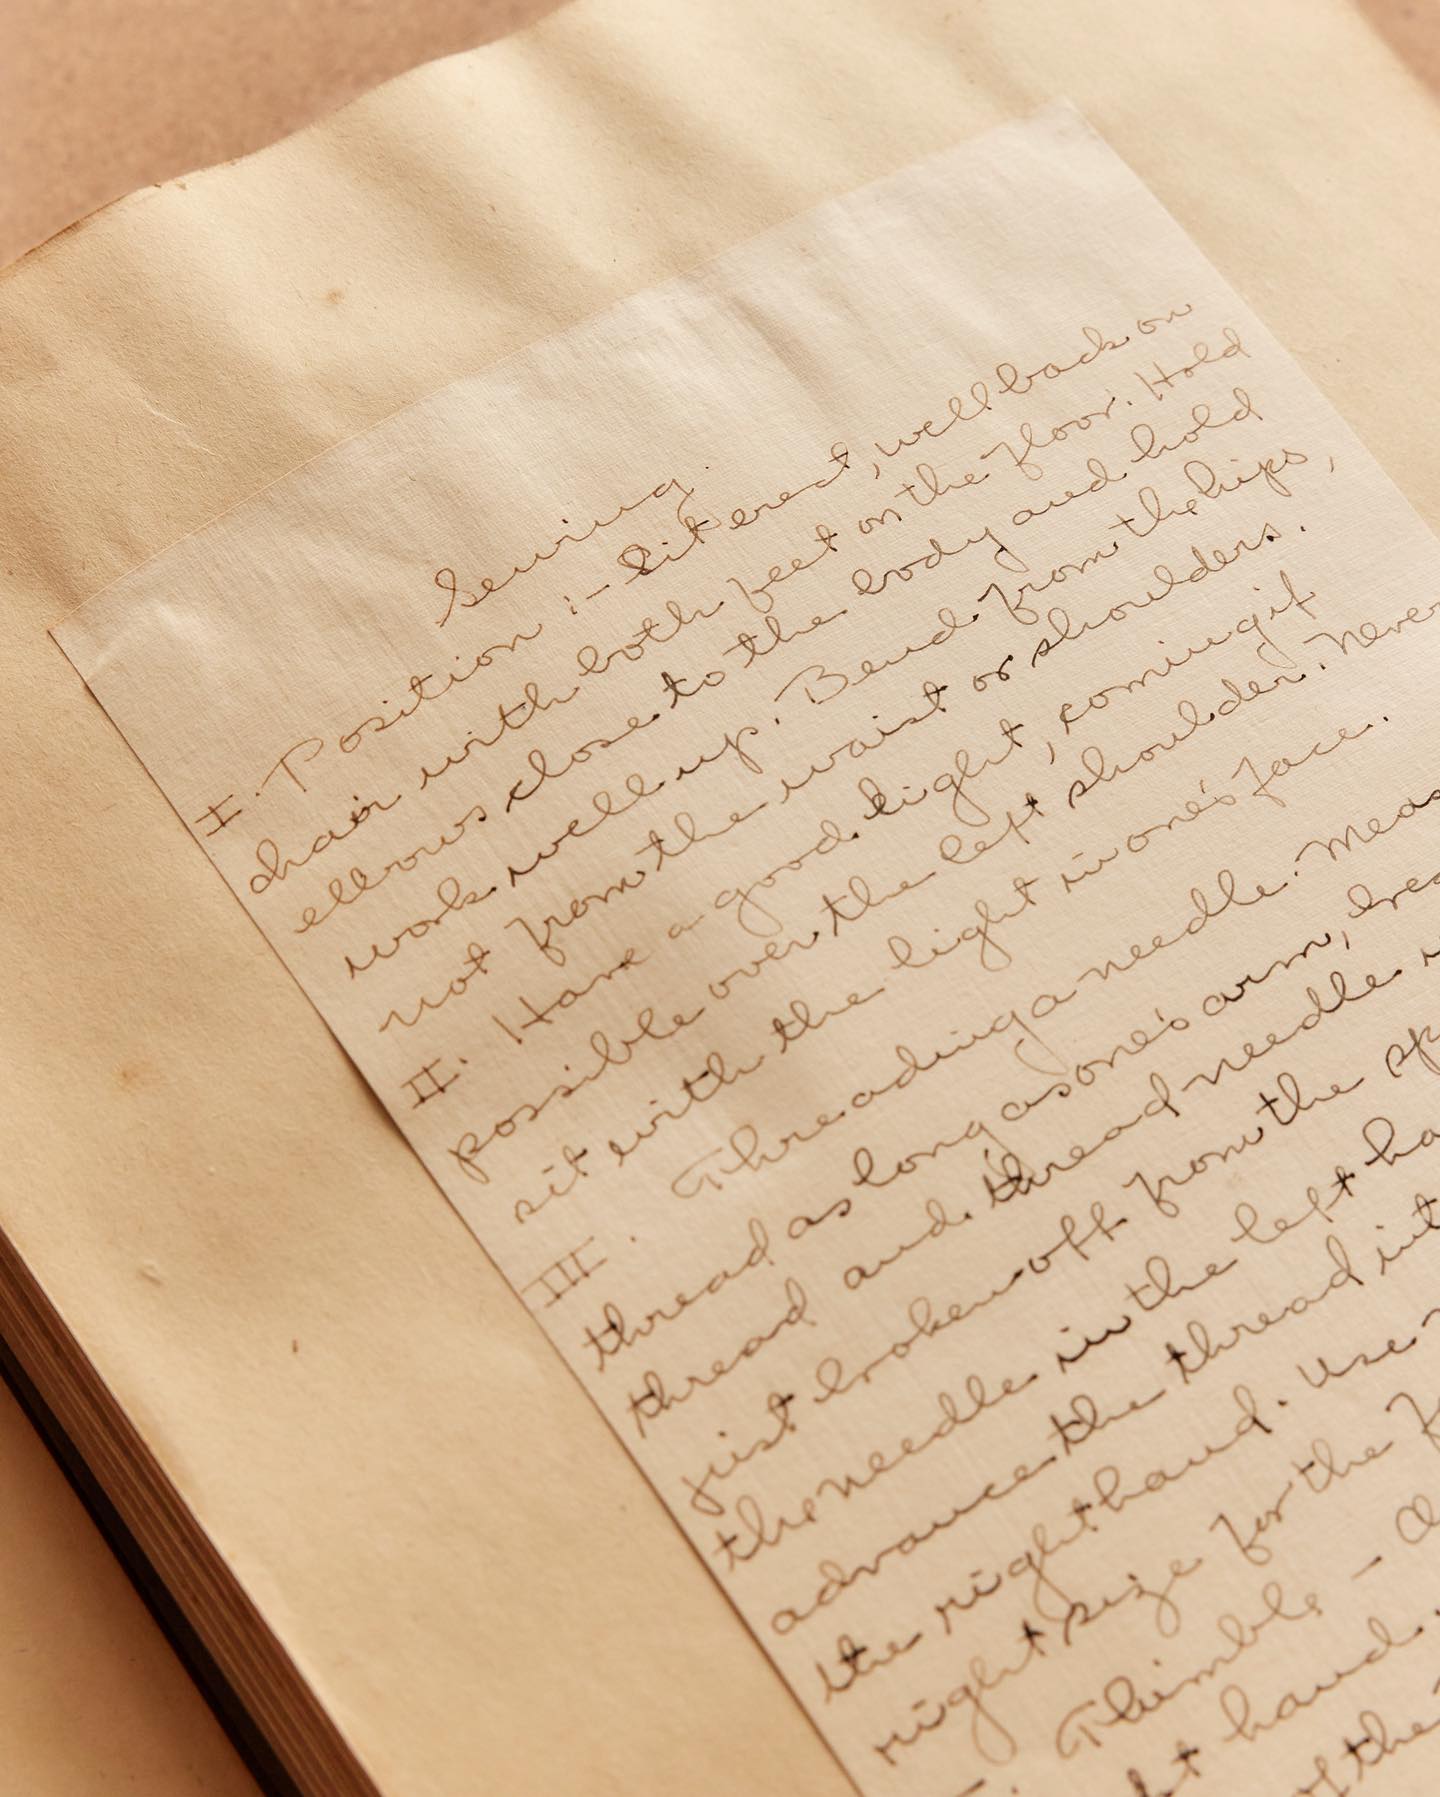 Sewing.
I. Position :- Sit erect, well back on
chair with both feet on the floor. Hold
elbows close to the body and hold
work well up. Bend from the hips,
not from the waist or shoulders.
II. Have a good light, coming if
possible over the left shoulder. Never
sit with the light in one's face.
III. Threading a needle. Meas
thread as long as one's arm, brea
thread and thread needle
just broken off from the sp
the needle in the left ha
advance the thread int
the right hand. Use
right size for the
Thimble -
ht hand.
of the